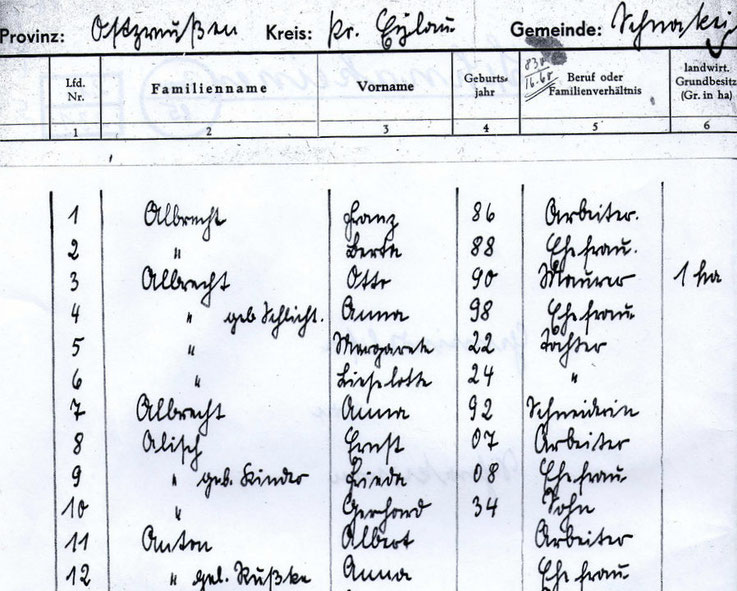 Provinz: Ostpreußen Kreis: Pr. Eylau Gemeinde:
Lfd. Nr. Familienname Vorname Geburts-jahr Beruf oder Familienverhältnis landwirt. Grundbesitz (Gr. in ha)
1 2 3 4 5 6
1 Albrecht Franz 86 Arbeiter.
2 " Berta 88 Ehefrau.
3 Albrecht Otto 90 Maurer 1 ha
4 " geb Schlicht. Anna 98 Ehefrau
5 " Margarete 22 Tochter
6 " Lieselotte 24 "
7 Albrecht Anna 92 Schneiderin
8 Alisch Ernst 07 Arbeiter
9 " geb. Kinder Frieda 08 Ehefrau
10 " Gerhard 34 Sohn
11 Anton Albert Arbeiter
12 " geb. Anna Ehefrau